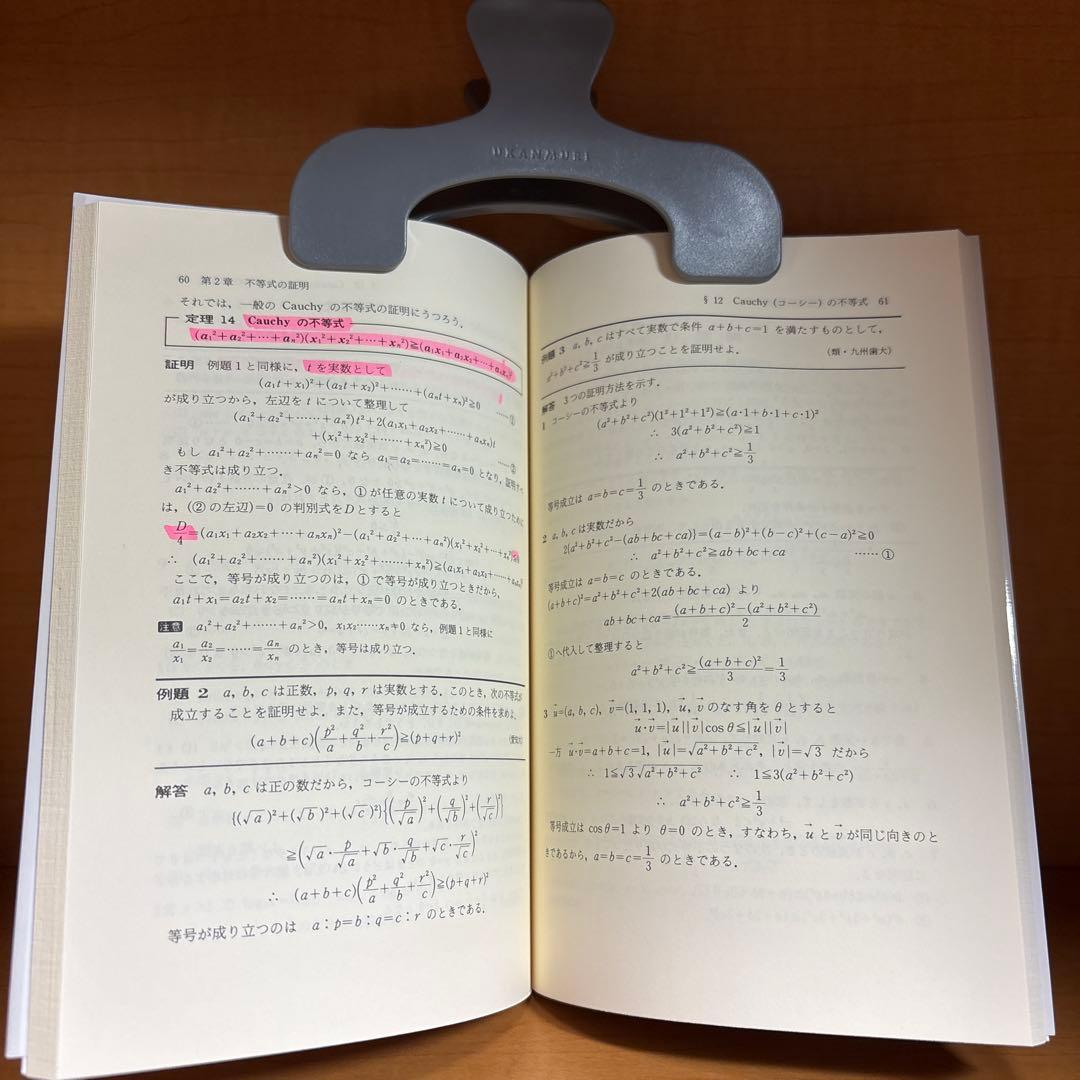 UKANMURI
60 第2章 不等式の証明
それでは，一般の Cauchy の不等式の証明にうつろう．
定理 14 Cauchy の不等式
(a₁²+a₂²+⋯+aₙ²)(x₁²+x₂²+⋯+xₙ²)≧(a₁x₁+a₂x₂+⋯+aₙxₙ)²
証明 例題1と同様に，t を実数として
(a₁t+x₁)²+(a₂t+x₂)²+⋯⋯+(aₙt+xₙ)²≧0 ⋯⋯①
が成り立つから，左辺を t について整理して
(a₁²+a₂²+⋯⋯+aₙ²)t²+2(a₁x₁+a₂x₂+⋯⋯+aₙxₙ)t
+(x₁²+x₂²+⋯⋯+xₙ²)≧0 ⋯⋯②
もし a₁²+a₂²+⋯⋯+aₙ²=0 なら a₁=a₂=⋯⋯=aₙ=0 となり，証明すべ
き不等式は成り立つ．
a₁²+a₂²+⋯⋯+aₙ²>0 なら，①が任意の実数 t について成り立つために
は，(②の左辺)=0 の判別式を D とすると
D/4=(a₁x₁+a₂x₂+⋯+aₙxₙ)²−(a₁²+a₂²+⋯+aₙ²)(x₁²+x₂²+⋯+xₙ²)≦0
∴ (a₁²+a₂²+⋯⋯+aₙ²)(x₁²+x₂²+⋯⋯+xₙ²)≧(a₁x₁+a₂x₂+⋯⋯+aₙxₙ)²
ここで，等号が成り立つのは，①で等号が成り立つときだから，
a₁t+x₁=a₂t+x₂=⋯⋯=aₙt+xₙ=0 のときである．
注意 a₁²+a₂²+⋯⋯+aₙ²>0, x₁x₂⋯⋯xₙ≠0 なら，例題1と同様に
a₁/x₁=a₂/x₂=⋯⋯=aₙ/xₙ のとき，等号は成り立つ．
例題 2 a, b, c は正数，p, q, r は実数とする．このとき，次の不等式が
成立することを証明せよ．また，等号が成立するための条件を求めよ．
(a+b+c)(p²/a+q²/b+r²/c)≧(p+q+r)²
解答 a, b, c は正の数だから，コーシーの不等式より
{(√a)²+(√b)²+(√c)²}{(p/√a)²+(q/√b)²+(r/√c)²}
≧(√a·p/√a+√b·q/√b+√c·r/√c)²
∴ (a+b+c)(p²/a+q²/b+r²/c)≧(p+q+r)²
等号が成り立つのは a：p=b：q=c：r のときである．
§12 Cauchy (コーシー) の不等式 61
例題 3 a, b, c はすべて実数で条件 a+b+c=1 を満たすものとして，
a²+b²+c²≧1/3 が成り立つことを証明せよ． (類・九州歯大)
解答 3つの証明方法を示す．
1 コーシーの不等式より
(a²+b²+c²)(1²+1²+1²)≧(a·1+b·1+c·1)²
∴ 3(a²+b²+c²)≧1
∴ a²+b²+c²≧1/3
等号成立は a=b=c=1/3 のときである．
2 a, b, c は実数だから
2{a²+b²+c²−(ab+bc+ca)}=(a−b)²+(b−c)²+(c−a)²≧0
∴ a²+b²+c²≧ab+bc+ca ⋯⋯①
等号成立は a=b=c のときである．
(a+b+c)²=a²+b²+c²+2(ab+bc+ca) より
ab+bc+ca=((a+b+c)²−(a²+b²+c²))/2
①へ代入して整理すると
a²+b²+c²≧(a+b+c)²/3=1/3
3 u⃗=(a, b, c), v⃗=(1, 1, 1), u⃗, v⃗ のなす角を θ とすると
u⃗·v⃗=|u⃗||v⃗|cosθ≦|u⃗||v⃗|
一方 u⃗·v⃗=a+b+c=1, |u⃗|=√(a²+b²+c²), |v⃗|=√3 だから
∴ 1≦√3√(a²+b²+c²) ∴ 1≦3(a²+b²+c²)
∴ a²+b²+c²≧1/3
等号成立は cosθ=1 より θ=0 のとき，すなわち，u⃗ と v⃗ が同じ向きのと
きであるから，a=b=c=1/3 のときである．